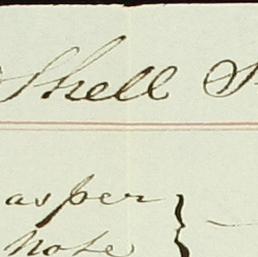 Shell
asper
note